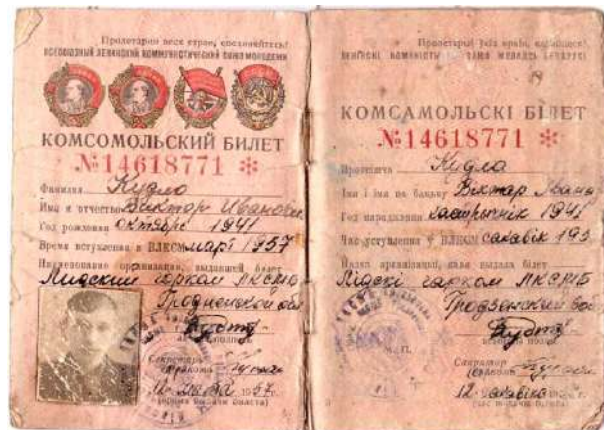 Пролетарии всех стран, соединяйтесь!
ВСЕСОЮЗНЫЙ ЛЕНИНСКИЙ КОММУНИСТИЧЕСКИЙ СОЮЗ МОЛОДЕЖИ
КОМСОМОЛЬСКИЙ БИЛЕТ
№14618771 *
Фамилия Кудло
Имя и отчество Виктор Иванович
Год рождения октябрь 1941
Время вступления в ВЛКСМ март 1957
Наименование организации, выдавшей билет
Лидский горком ЛКСМБ
Гродненской обл
Секретарь
горкома
12 марта 1957
Пролетарыі ўсіх краін, еднайцеся!
КОМСАМОЛЬСКІ БІЛЕТ
№14618771 *
Прозвішча Кудла
Імя і імя па бацьку Віктар Іван
Год нараджэння кастрычнік 1941
Час уступлення ў ВЛКСМ сакавік 195
Назва арганізацыі, якая выдала білет
Лідскі гарком ЛКСМБ
Гродзенскай
М.П.
Сакратар
12 сакавіка